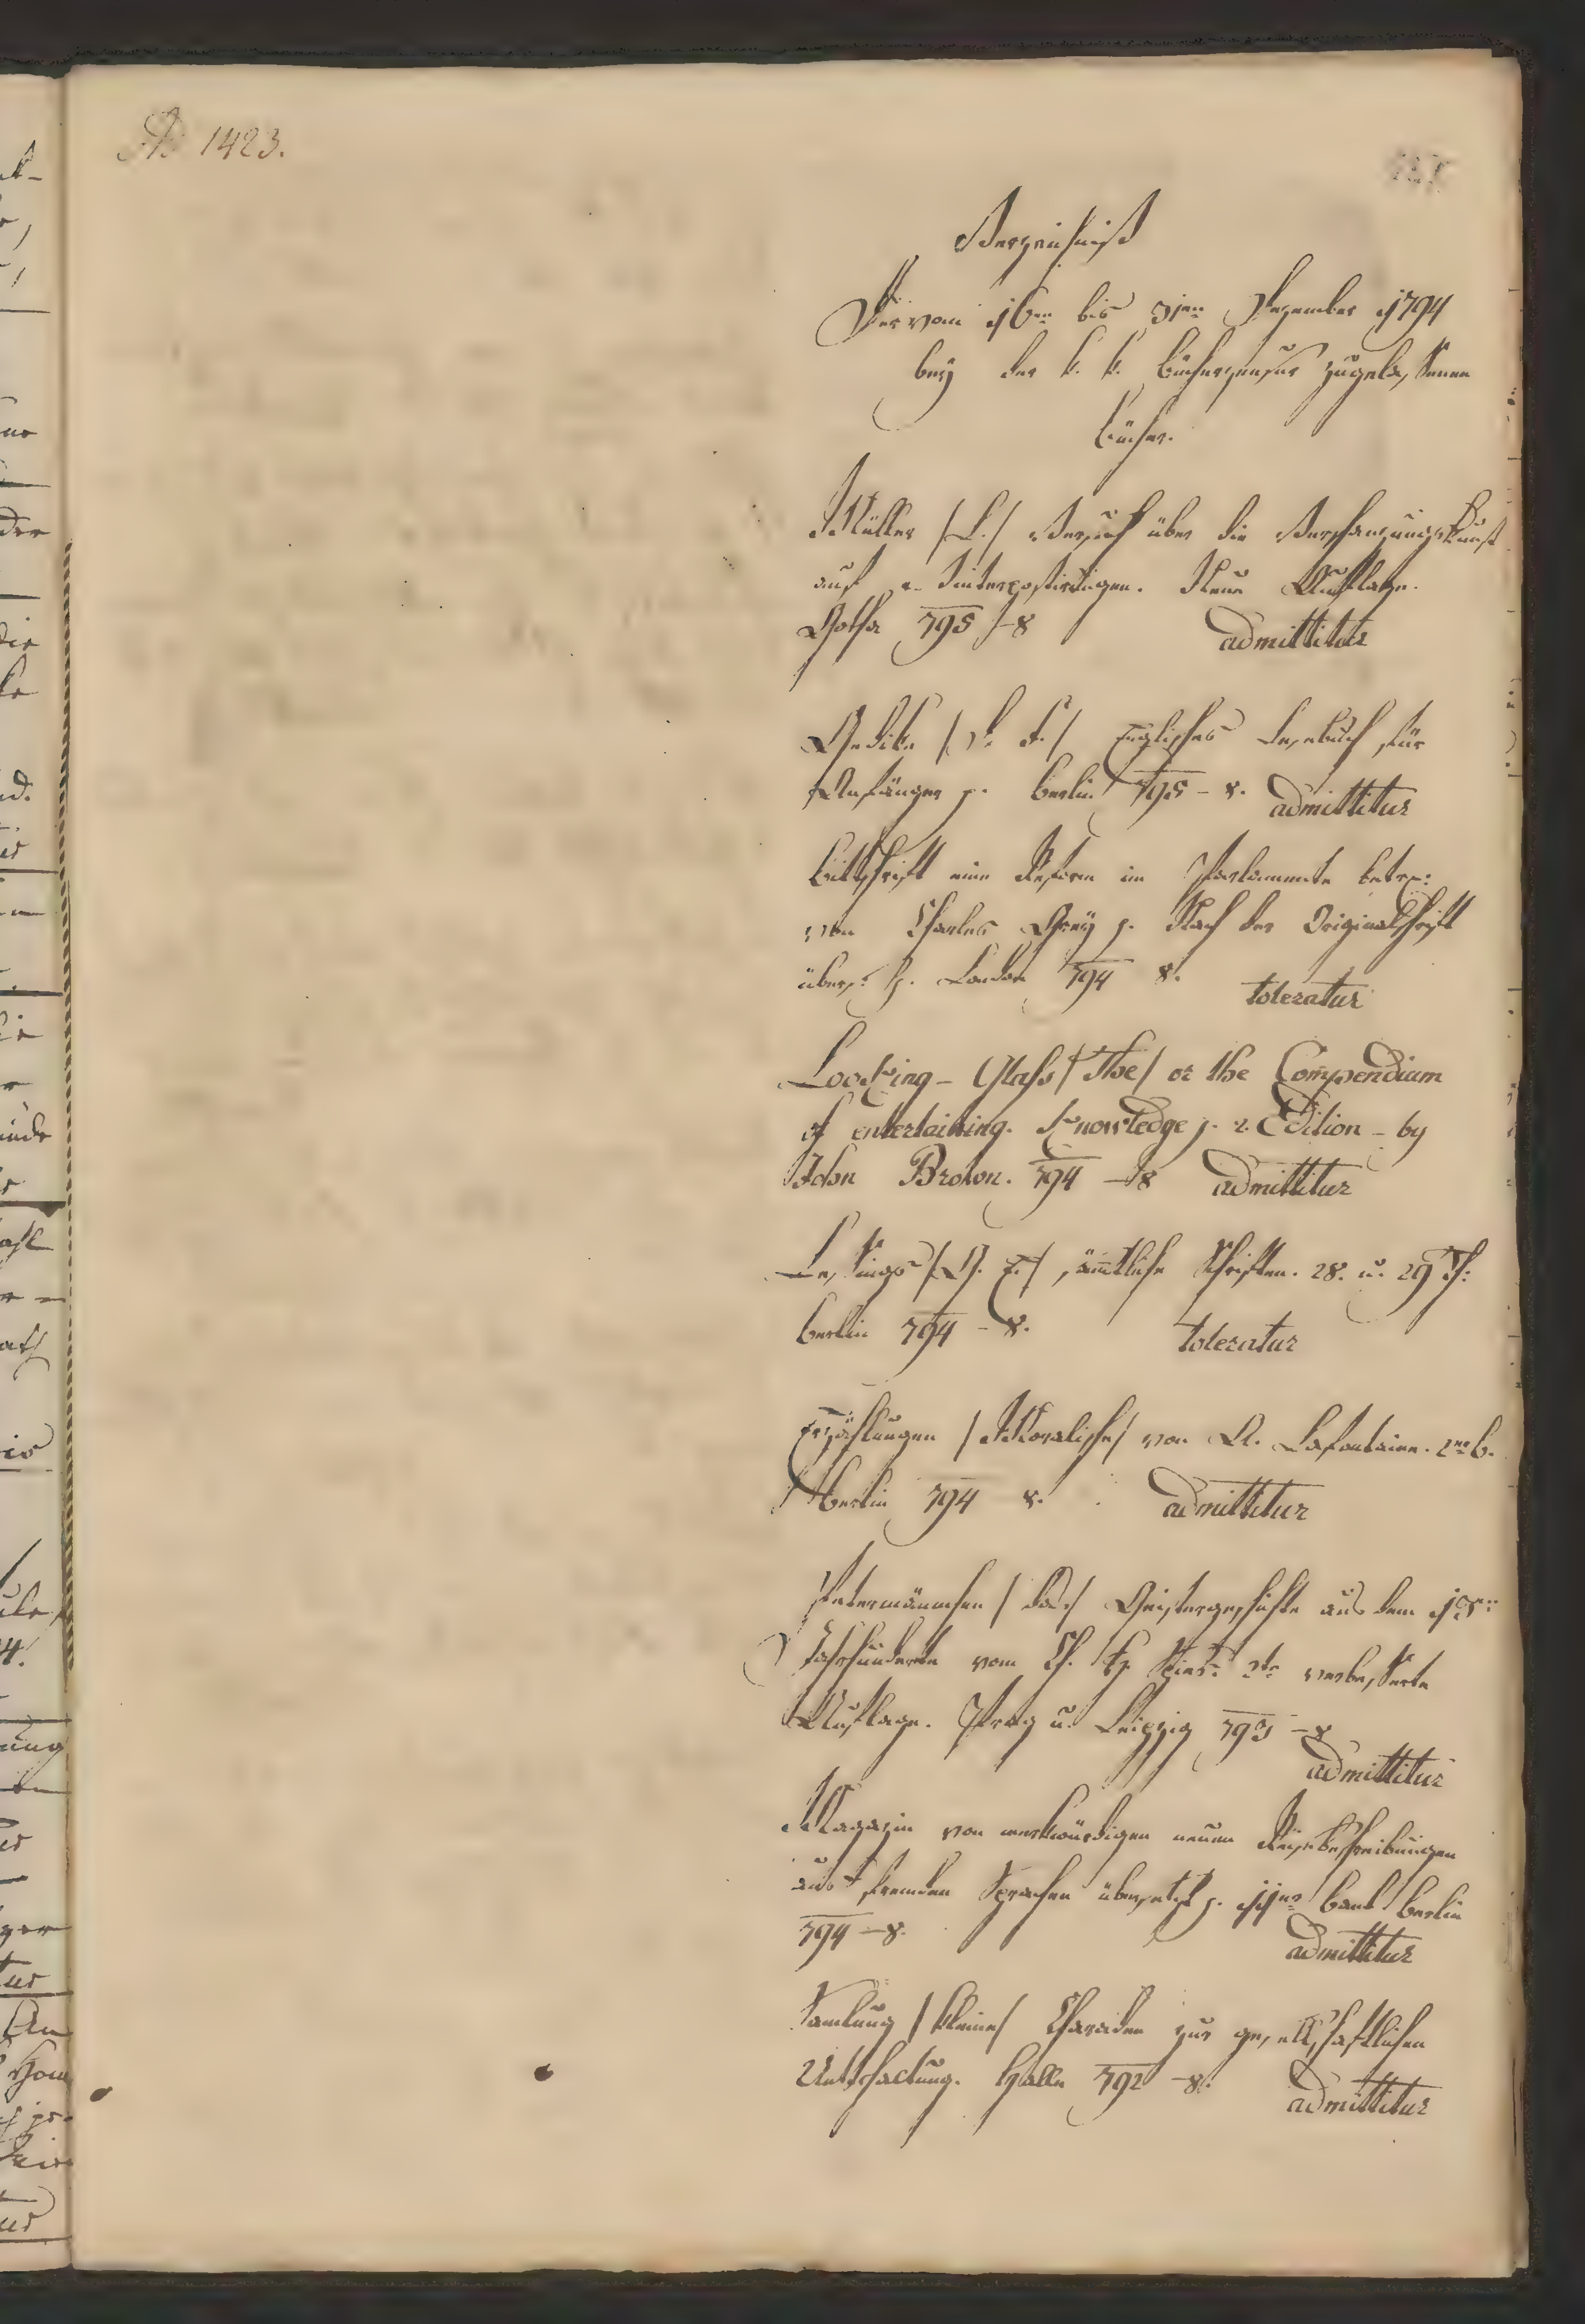 Ad 1423.
Verzeichniß
Der vom 16ten bis 31ten Dezember 1794
bey der k. k. Bücherzensur zugelassenen
Bücher.
Müller /L./ Versuch über die Verschanzungskunst
auf Winterpostirungen. Neue Auflage.
Gotha 795 – 8 admittitur
Gedike /F./ Englisches Lesebuch für
Anfänger p. Berlin 795 – 8. admittitur
Bittschrift eine Reform im Parlamente betref:
von Charles Grey p. Nach der Originalschrift
übers: p. London 794 8. toleratur
Looking – Glass /The/ or the Compendium
of entertaining. Knowledge p. 2. Edition – by
John Brown. 794 – 8 admittitur
Lessings /G. E./ sämtliche Schriften. 28. u. 29 Th:
Berlin 794 – 8. toleratur
Erzählungen /Moralische/ von A. Lafontaine. 2ter B.
Berlin 794 8. admittitur
Petermännchen /das/ Geistergeschichte aus dem 13ten
Jahrhunderte vom Ch. H. Spieß: 2te verbesserte
Auflage. Prag u. Leipzig 793 – 8
admittitur
Magazin von merkwürdigen neuen Reisebeschreibungen
aus fremden Sprachen übersetzt p. 11ter Band Berlin
794 – 8. admittitur
Samlung /kleine/ Charaden zur gesellschaftlichen
Unterhaltung. Halle 792 – 8. admittitur